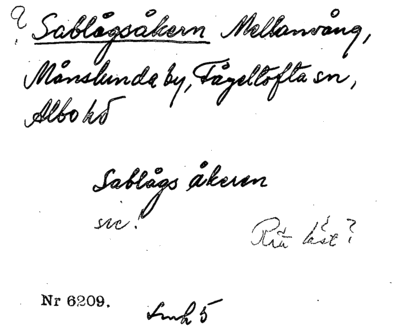 ? Sablågsåkern Mellanvång,
Månslunda by, Fågeltofta sn,
Albo hd
Sablågs åkeren
sic!
Rätt läst?
Nr 6209.
Lmh 5